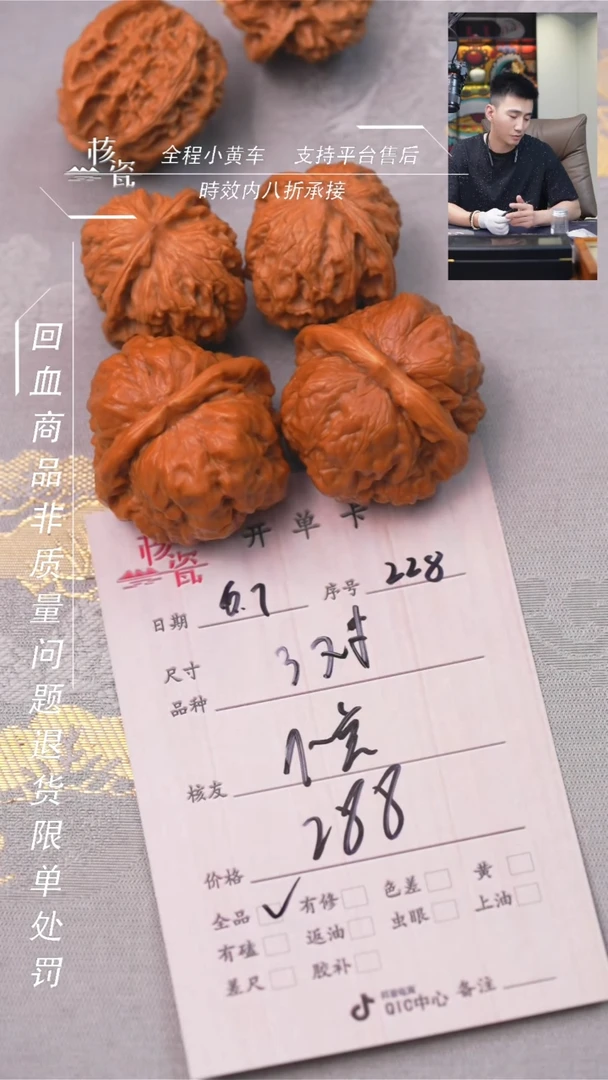 核瓷
全程小黄车 支持平台售后
時效内八折承接
回血商品非质量问题退货限单处罚
核瓷
开单卡
日期 6.7 序号 228
尺寸 3对
品种
核友
288
价格
全品 ✓ 有修 色差 黄
有磕 返油 虫眼 上油
差尺 胶补
抖音电商
QIC中心 备注